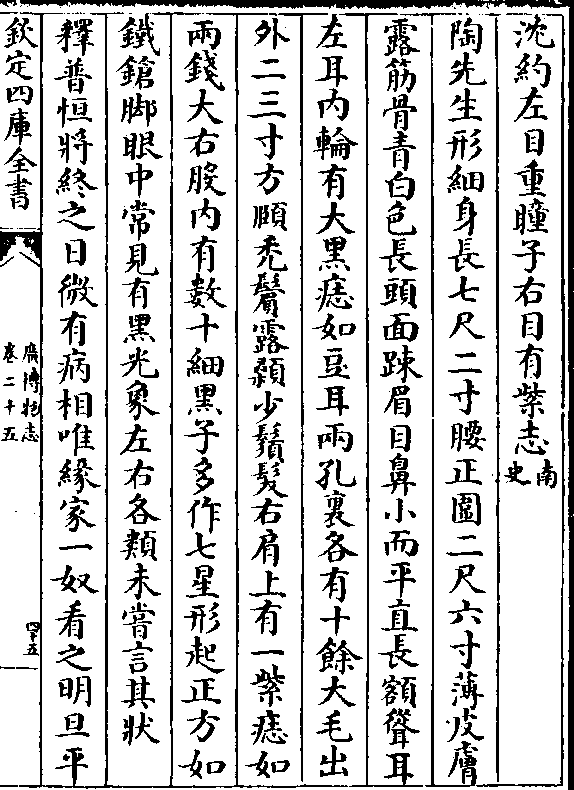 沈約左目重瞳子右目有紫志南史
陶先生形細身長七尺二寸腰正圍二尺六寸薄皮膚
露筋骨青白色長頭面踈眉目鼻小而平直長額聳耳
左耳内輪有大黑痣如豆耳兩孔裏各有十餘大毛出
外二三寸方頤禿鬢露顙少鬚髮右肩上有一紫痣如
兩錢大右股内有數十細黑子多作七星形起正方如
鐵鎗脚眼中常見有黑光象左右各類未嘗言其狀
釋普恒將終之日微有病相唯緣家一奴看之明旦平
欽定四庫全書
廣博物志
卷二十五
四十五